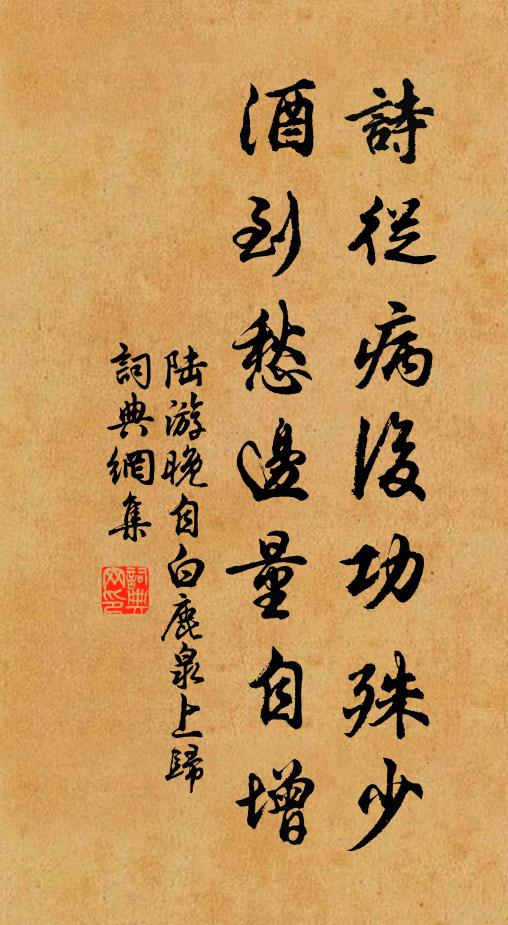 詩從病後功殊少
酒到愁邊量自增
陆游晚自白鹿泉上歸
詞典網集
詞典
网印